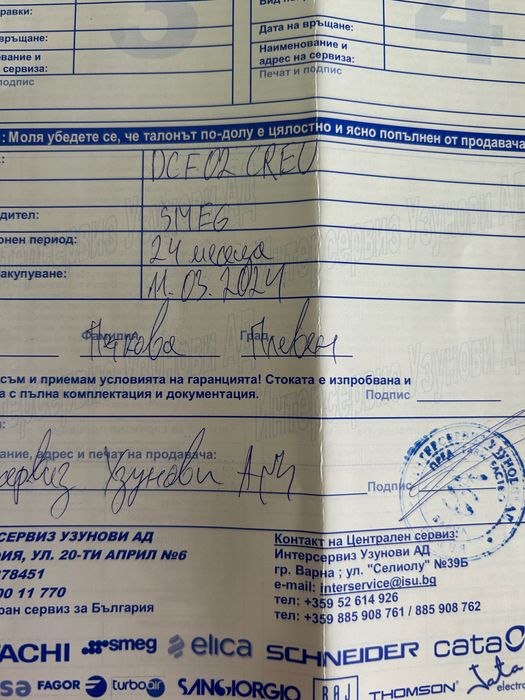 равки:
връщане:
вание и
сервиза:
подпис
3
Дата на връщане:
Наименование и
адрес на сервиза:
Печат и подпис
4
: Моля убедете се, че талонът по-долу е цялостно и ясно попълнен от продавача
DCF02CREU
дител: SMEG
онен период: 24 месеца
акупуване: 11.03.2024
Фамилия Град
Плевен
съм и приемам условията на гаранцията! Стоката е изпробвана и
а с пълна комплектация и документация. Подпис
ание, адрес и печат на продавача:
сервиз Узунови АД Подпис
СЕРВИЗ УЗУНОВИ АД
ФИЯ, УЛ. 20-ТИ АПРИЛ №6
978451
00 11 770
ран сервиз за България
Контакт на Централен сервиз:
Интерсервиз Узунови АД
гр. Варна ; ул. "Селиолу" №39Б
e-mail: interservice@isu.bg
тел: +359 52 614 926
тел: +359 885 908 761 / 885 908 762
TACHI smeg elica SCHNEIDER cata
sa FAGOR turboair SANGIORGIO RAJ THOMSON Tata
electro